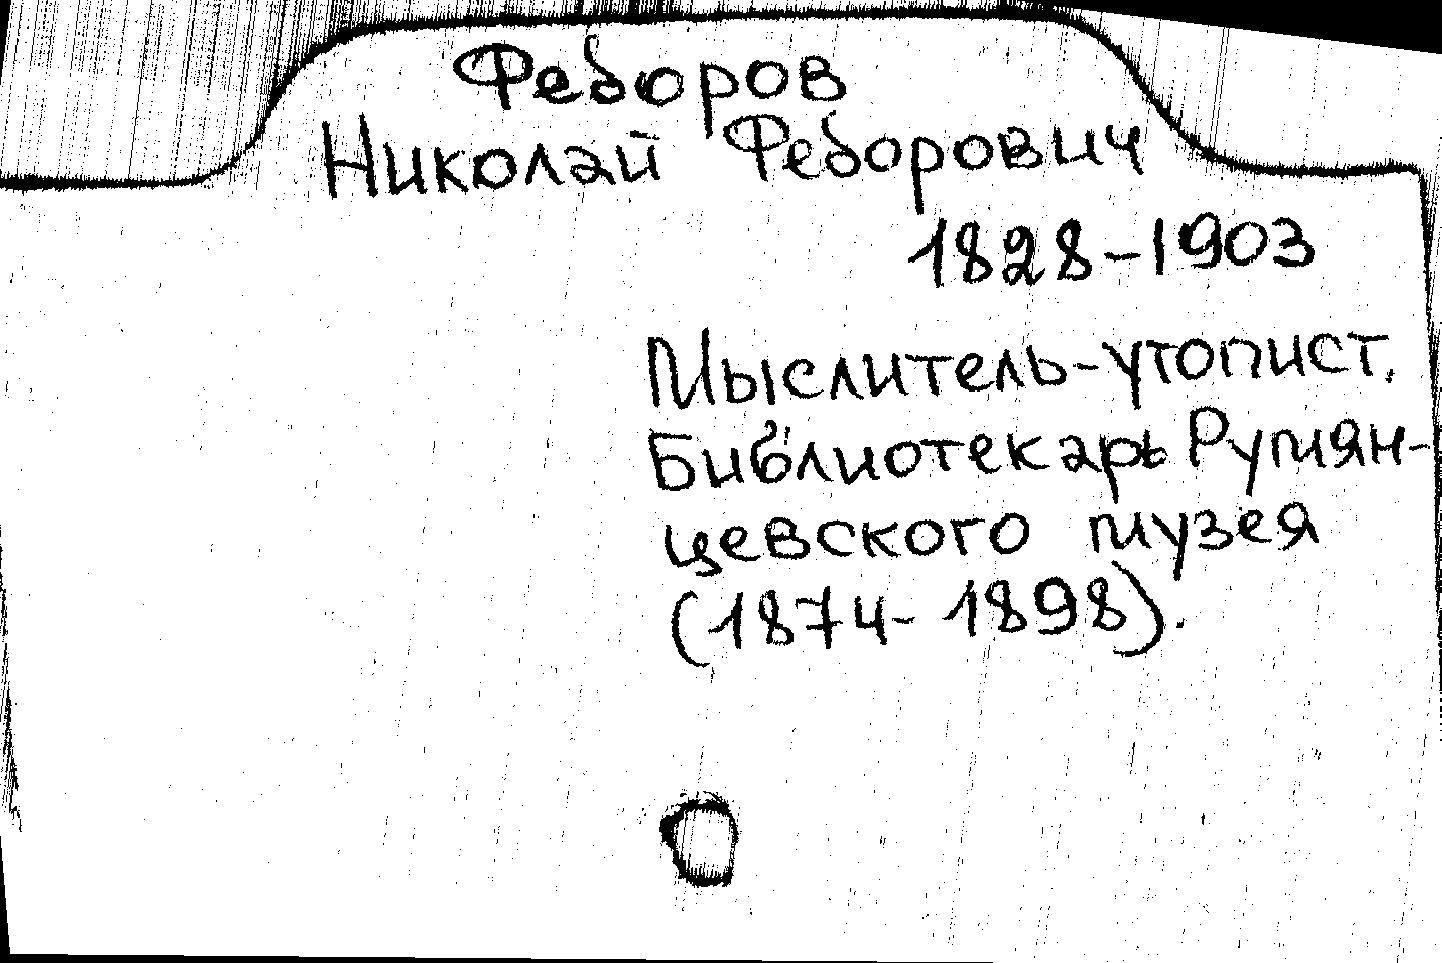 Федоров
Николай Федорович
1828-1903
Мыслитель-утопист.
Библиотекарь Румян-
цевского музея
(1874-1898).